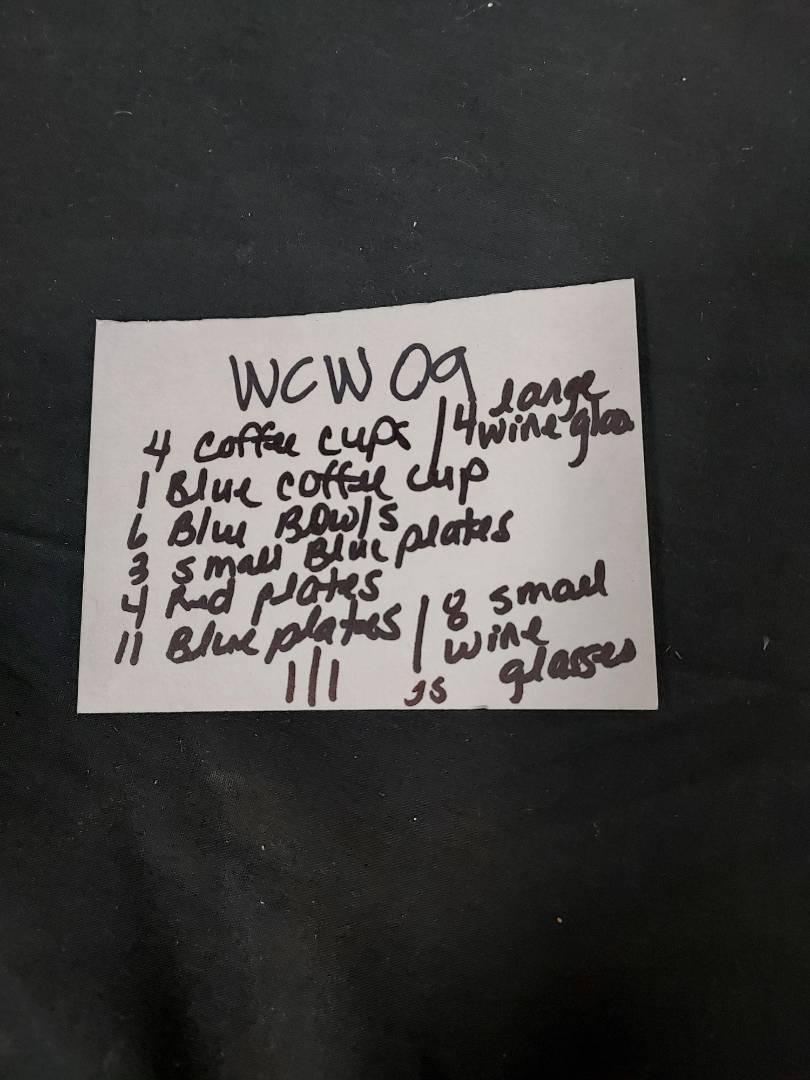 WCW 09
4 coffee cups / 4 large
wine glass
1 Blue coffee cup
6 Blue Bowls
3 small Blue plates
4 Red plates
11 Blue plates / 8 small
wine
glasses
1/1 JS